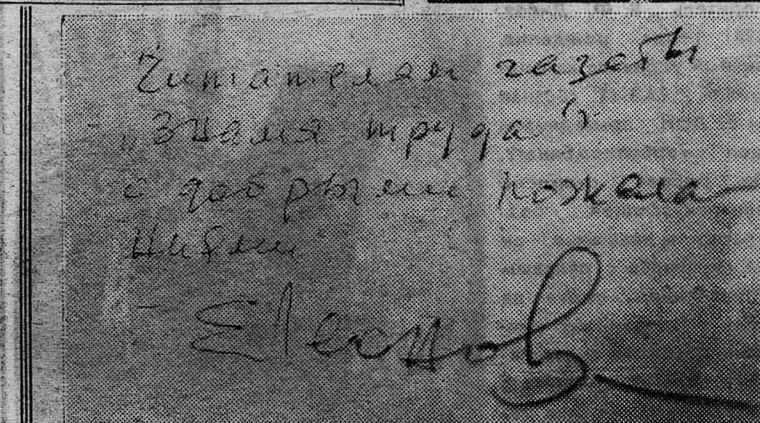 Читателям газеты
„Знамя труда"
с добрыми пожела-
ниями
ЕЛеонов